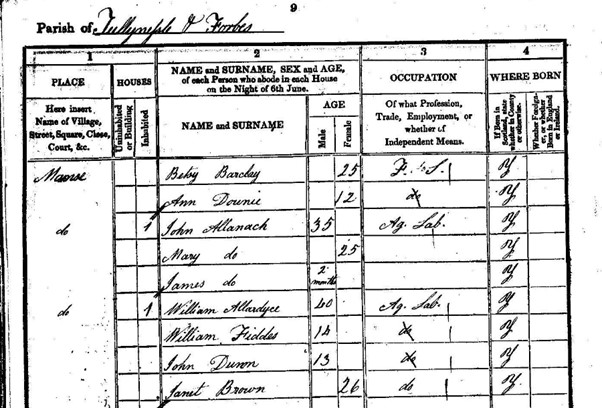 9
Parish of Tullynessle & Forbes
1 2 3 4
PLACE HOUSES NAME and SURNAME, SEX and AGE, of each Person who abode in each House on the Night of 6th June. OCCUPATION WHERE BORN
Here insert Name of Village, Street, Square, Close, Court, &c.
Uninhabited or Building
Inhabited
NAME and SURNAME
AGE
Male
Female
Of what Profession, Trade, Employment, or whether of Independent Means.
If Born in Scotland, state whether in County or otherwise.
Whether Foreigner, or whether Born in England or Ireland.
Manse Betsy Barclay 25 F. S. Y
Ann Downie 12 do Y
do 1 John Allanach 35 Ag. Lab. Y
Mary do 25 Y
James do 2 months Y
do 1 William Allardyce 40 Ag. Lab. Y
William Fiddes 14 do Y
John 13 do Y
Janet Brown 26 do Y